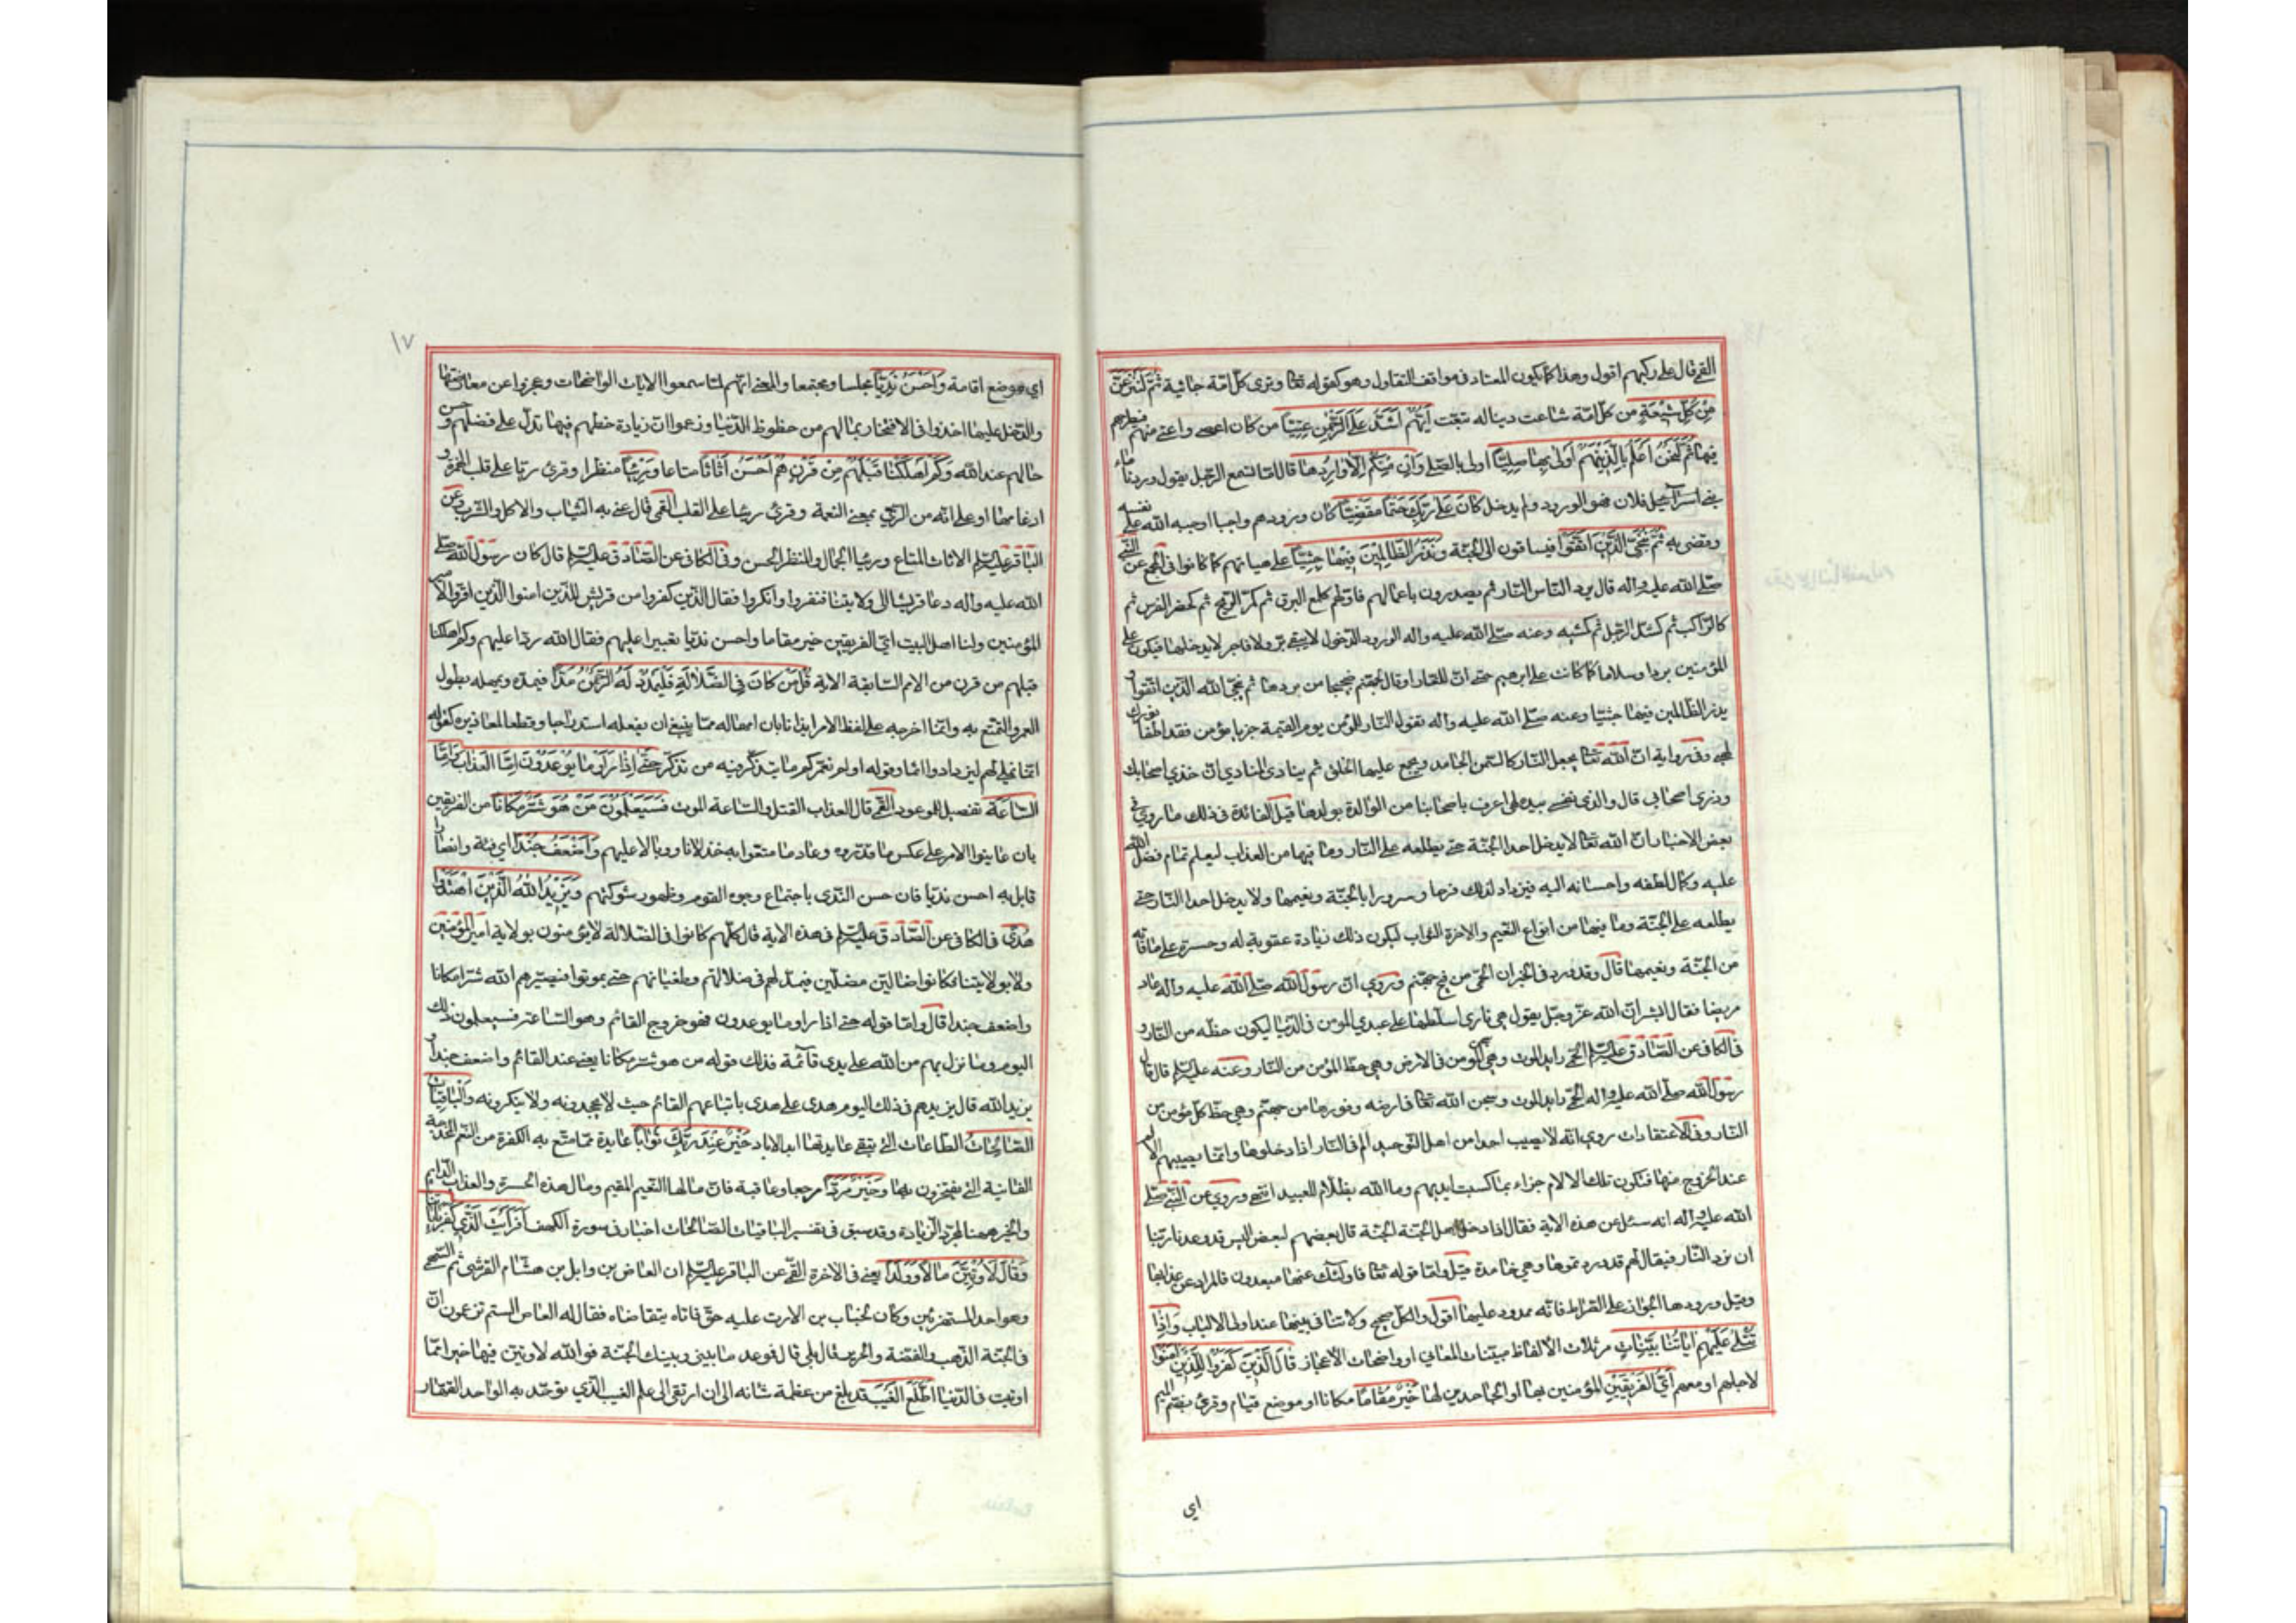 القمّي قال على ركبهم اقول وهذا كما يكون المعتاد في مواقف التقاول وهو كقوله تعالى وترى كلّ امّة جاثية ثُمَّ لَنَنْزِعَنَّ
مِنْ كُلِّ شِيعَةٍ من كلّ امّة شاعت دينا له تبعّت أَيُّهُمْ أَشَدُّ عَلَى الرَّحْمٰنِ عِتِيّاً من كان اعصى واعتى منهم فنطرحهم
فيها ثُمَّ لَنَحْنُ أَعْلَمُ بِالَّذِينَ هُمْ أَوْلىٰ بِها صِلِيّاً اولى بالصّلى وَإِنْ مِنْكُمْ إِلّا وارِدُها قال اما تسمع الرّجل يقول وردنا ماء
بني اسرائيل فلان فهو الورود ولم يدخل كانَ عَلىٰ رَبِّكَ حَتْماً مَقْضِيّاً كان ورودهم واجبا اوجبه الله على نفسه
وقضى به ثُمَّ نُنَجِّي الَّذِينَ اتَّقَوْا فيساقون الى الجنّة وَنَذَرُ الظّالِمِينَ فِيها جِثِيّاً على هيئاتهم كما كانوا في المجمع عن النّبي
صلّى الله عليه واله قال يرد النّاس النّار ثم يصدرون باعمالهم فاوّلهم كلمع البرق ثم كمرّ الريح ثم كحضر الفرس ثم
كالرّاكب ثم كشدّ الرّجل ثم كمشيه وعنه صلّى الله عليه واله الورود الدّخول لا يبقى برّ ولا فاجر الا يدخلها فيكون على
المؤمنين بردا وسلاما كما كانت على ابرهيم حتى انّ للنّار او قال لجهنّم ضجيجا من بردها ثم ينجّي الله الذّين اتّقوا و
يذر الظّالمين فيها جثيّا وعنه صلّى الله عليه واله تقول النّار للمؤمن يوم القيمة جز يا مؤمن فقد اطفأ نورك
لهبي وفي رواية انّ الله تعالى يجعل النّار كالسّمن الجامد ويجمع عليها الخلق ثم ينادى المنادي ان خذي اصحابك
وذرى اصحابي قال والذي نفسي بيده لهي اعرف باصحابها من الوالدة بولدها قيل الفائدة في ذلك ما روي في
بعض الاخبار انّ الله تعالى لا يدخل احدا الجنّة حتى يطلعه على النّار وما فيها من العذاب ليعلم تمام فضل الله
عليه وكمال لطفه واحسانه اليه فيزداد لذلك فرحا وسرورا بالجنّة ونعيمها ولا يدخل احدا النّار حتى
يطلعه على الجنّة وما فيها من انواع النّعيم والاخرة الثواب ليكون ذلك زيادة عقوبة له وحسرة على ما فاته
من الجنّة ونعيمها قال وقد ورد في الخبر ان الحمّى من فيح جهنّم وروي انّ رسول الله صلّى الله عليه واله عاد
مريضا فقال ابشر انّ الله عزّ وجلّ يقول هي نارى اسلّطها على عبدي المؤمن في الدّنيا ليكون حظّه من النّار و
في الكافي عن الصّادق عليه السّلم الحمّى رايد الموت وهي سجن المؤمن في الارض وهي حظّ المؤمن من النّار وعنه عليه السّلم قال قال
رسول الله صلّى الله عليه واله الحمّى رايد الموت وسجن الله تعالى في ارضه وفورها من جهنّم وهي حظّ كلّ مؤمن من
النّار وفي الاعتقادات روي انّه لا يصيب احدا من اهل التّوحيد الم في النّار اذا دخلوها وانّما يصيبهم الالام
عند الخروج منها فتكون تلك الالام جزاء بما كسبت ايديهم وما الله بظلّام للعبيد انتهى وروي عن النّبي صلّى
الله عليه واله انه سئل عن هذه الاية فقال اذا دخل اهل الجنّة الجنّة قال بعضهم لبعض اليس قد وعدنا ربّنا
ان نرد النّار فيقال لهم قد وردتموها وهي خامدة قيل وامّا قوله تعالى فاولئك عنها مبعدون فالمراد عن عذابها
وقيل ورودها الجواز على الصّراط فانّه ممدود عليها اقول والكلّ صحيح ولا تنافي بينها عند اولى الالباب وَإِذا
تُتْلىٰ عَلَيْهِمْ آياتُنا بَيِّناتٍ مرتّلات الألفاظ مبيّنات المعاني او واضحات الأعجاز قالَ الَّذِينَ كَفَرُوا لِلَّذِينَ آمَنُوا
لاجلهم او معهم أَيُّ الْفَرِيقَيْنِ المؤمنين بها او الجاحدين لها خَيْرٌ مَقاماً مكانا او موضع قيام وقرئ بضمّ الميم
اى
١٧
اي موضع اقامة وَأَحْسَنُ نَدِيّاً مجلسا ومجتمعا والمعنى انّهم لما سمعوا الايات الواضحات وعجزوا عن معارضتها
والدّخل عليها اخذوا في الافتخار بما لهم من حظوظ الدّنيا وزعموا انّ زيادة حظّهم فيها تدلّ على فضلهم و حسن
حالهم عند الله وَكَمْ أَهْلَكْنا قَبْلَهُمْ مِنْ قَرْنٍ هُمْ أَحْسَنُ أَثاثاً متاعا وَرِئْياً منظرا وقرئ ريّا على قلب الهمزة و
ادغامها او على انّه من الرّي بمعنى النعمة وقرئ ريئا على القلب القمّي قال عنى به الثّياب والاكل والشّرب وعن
الباقر عليه السّلم الاثاث المتاع ورئيا الجمال والمنظر الحسن وفي الكافي عن الصّادق عليه السّلم قال كان رسول الله صلّى
الله عليه واله دعا قريشا الى ولايتنا فنفروا وانكروا فقال الذّين كفروا من قريش للذّين امنوا الذّين اقرّوا لامير
المؤمنين ولنا اهل البيت ايّ الفريقين خير مقاما واحسن نديّا تعييرا عليهم فقال الله ردّا عليهم وكم اهلكنا
قبلهم من قرن من الامم السّابقة الاية قُلْ مَنْ كانَ فِي الضَّلالَةِ فَلْيَمْدُدْ لَهُ الرَّحْمٰنُ مَدّاً فيمدّه ويمهله بطول
العمر والتّمتّع به وانّما اخرجه على لفظ الامر ايذانا بان امهاله ممّا ينبغي ان يفعله استدراجا وقطعا لمعاذيره كقوله
انّما نملي لهم ليزدادوا اثما وقوله اولم نعمّركم ما يتذكّر فيه من تذكّر حَتّىٰ إِذا رَأَوْا ما يُوعَدُونَ إِمَّا الْعَذابَ وَإِمَّا
السّاعَةَ تفصيل للموعود القمّي قال العذاب القتل والسّاعة الموت فَسَيَعْلَمُونَ مَنْ هُوَ شَرٌّ مَكاناً من الفريقين
بان عاينوا الامر على عكس ما قدّروه وعاد ما متّعوا به خذلانا ووبالا عليهم وَأَضْعَفُ جُنْداً اي فئة وانصارا
قابل به احسن نديّا فان حسن النّدى باجتماع وجوه القوم وظهور شوكتهم وَيَزِيدُ اللهُ الَّذِينَ اهْتَدَوْا
هُدىً في الكافي عن الصّادق عليه السّلم في هذه الاية قال كلّهم كانوا في الضّلالة لا يؤمنون بولاية امير المؤمنين
ولا بولايتنا فكانوا ضالّين مضلّين فيمدّ لهم في ضلالتهم وطغيانهم حتى يموتوا فيصيّرهم الله شرّا مكانا
واضعف جندا قال وامّا قوله حتى اذا راوا ما يوعدون فهو خروج القائم وهو السّاعة فسيعلمون ذلك
اليوم وما نزل بهم من الله على يدى قائمه فذلك قوله من هو شرّ مكانا يعني عند القائم واضعف جندا و
يزيد الله قال يزيدهم في ذلك اليوم هدى على هدى باتباعهم القائم حيث لا يجحدونه ولا ينكرونه وَالْباقِياتُ
الصّالِحاتُ الطّاعات التي يبقى عايدتها ابد الاباد خَيْرٌ عِنْدَ رَبِّكَ ثَواباً عايدة ممّا متّع به الكفرة من النّعم المخدجة
الفانية التي يفتخرون بها وَخَيْرٌ مَرَدّاً مرجعا وعاقبة فانّ مالها النّعيم المقيم ومال هذه الحسرة والعذاب الدّايم
والخير ههنا لمجرّد الزّيادة وقد سبق في تفسير الباقيات الصّالحات اخبار في سورة الكهف أَفَرَأَيْتَ الَّذِي كَفَرَ بِآياتِنا
وَقالَ لَأُوتَيَنَّ مالاً وَوَلَداً يعني في الاخرة القمّي عن الباقر عليه السّلم ان العاص بن وايل بن هشام القرشي ثم السّهمي
وهو احد المستهزئين وكان لخبّاب بن الارت عليه حقّ فاتاه يتقاضاه فقال له العاص الستم تزعمون انّ
في الجنّة الذّهب والفضّة والحرير قال بلى قال فوعد ما بيني وبينك الجنّة فوالله لاوتينّ فيها خيرا ممّا
اوتيت في الدّنيا أَطَّلَعَ الْغَيْبَ قد بلغ من عظمة شانه الى ان ارتقى الى علم الغيب الذّي توحّد به الواحد القهّار